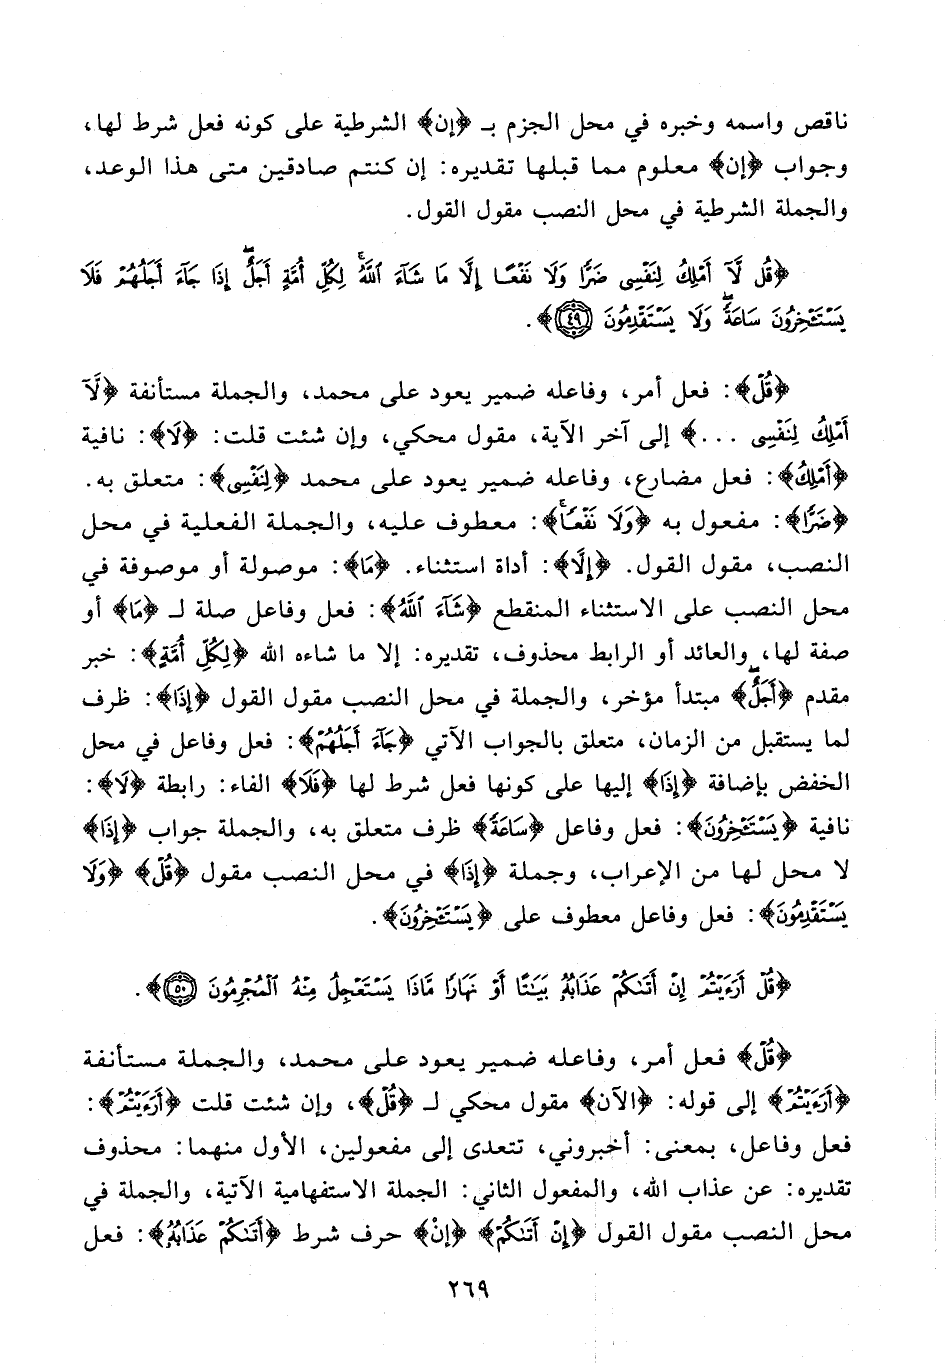 ناقص واسمه وخبره في محل الجزم بـ ﴿إن﴾ الشرطية على كونه فعل شرط لها،
وجواب ﴿إن﴾ معلوم مما قبلها تقديره: إن كنتم صادقين متى هذا الوعد،
والجملة الشرطية في محل النصب مقول القول.
﴿قُل لَّآ أَمْلِكُ لِنَفْسِى ضَرًّا وَلَا نَفْعًا إِلَّا مَا شَآءَ ٱللَّهُ ۗ لِكُلِّ أُمَّةٍ أَجَلٌ ۚ إِذَا جَآءَ أَجَلُهُمْ فَلَا
يَسْتَـْٔخِرُونَ سَاعَةً ۖ وَلَا يَسْتَقْدِمُونَ ﴿٤٩﴾﴾.
﴿قُلْ﴾: فعل أمر، وفاعله ضمير يعود على محمد، والجملة مستأنفة ﴿لَّآ
أَمْلِكُ لِنَفْسِى ...﴾ إلى آخر الآية، مقول محكي، وإن شئت قلت: ﴿لَا﴾: نافية
﴿أَمْلِكُ﴾: فعل مضارع، وفاعله ضمير يعود على محمد ﴿لِنَفْسِى﴾: متعلق به.
﴿ضَرًّا﴾: مفعول به ﴿وَلَا نَفْعًا﴾: معطوف عليه، والجملة الفعلية في محل
النصب، مقول القول. ﴿إِلَّا﴾: أداة استثناء. ﴿مَا﴾: موصولة أو موصوفة في
محل النصب على الاستثناء المنقطع ﴿شَآءَ ٱللَّهُ﴾: فعل وفاعل صلة لـ ﴿مَا﴾ أو
صفة لها، والعائد أو الرابط محذوف، تقديره: إلا ما شاءه الله ﴿لِكُلِّ أُمَّةٍ﴾: خبر
مقدم ﴿أَجَلٌ ۚ﴾ مبتدأ مؤخر، والجملة في محل النصب مقول القول ﴿إِذَا﴾: ظرف
لما يستقبل من الزمان، متعلق بالجواب الآتي ﴿جَآءَ أَجَلُهُمْ﴾: فعل وفاعل في محل
الخفض بإضافة ﴿إِذَا﴾ إليها على كونها فعل شرط لها ﴿فَلَا﴾ الفاء: رابطة ﴿لَا﴾:
نافية ﴿يَسْتَـْٔخِرُونَ﴾: فعل وفاعل ﴿سَاعَةً﴾ ظرف متعلق به، والجملة جواب ﴿إِذَا﴾
لا محل لها من الإعراب، وجملة ﴿إِذَا﴾ في محل النصب مقول ﴿قُلْ﴾ ﴿وَلَا
يَسْتَقْدِمُونَ﴾: فعل وفاعل معطوف على ﴿يَسْتَـْٔخِرُونَ﴾.
﴿قُلْ أَرَءَيْتُمْ إِنْ أَتَىٰكُمْ عَذَابُهُۥ بَيَٰتًا أَوْ نَهَارًا مَّاذَا يَسْتَعْجِلُ مِنْهُ ٱلْمُجْرِمُونَ ﴿٥٠﴾﴾.
﴿قُلْ﴾ فعل أمر، وفاعله ضمير يعود على محمد، والجملة مستأنفة
﴿أَرَءَيْتُمْ﴾ إلى قوله: ﴿الآن﴾ مقول محكي لـ ﴿قُلْ﴾، وإن شئت قلت ﴿أَرَءَيْتُمْ﴾:
فعل وفاعل، بمعنى: أخبروني، تتعدى إلى مفعولين، الأول منهما: محذوف
تقديره: عن عذاب الله، والمفعول الثاني: الجملة الاستفهامية الآتية، والجملة في
محل النصب مقول القول ﴿إِنْ أَتَىٰكُمْ﴾ ﴿إِنْ﴾ حرف شرط ﴿أَتَىٰكُمْ عَذَابُهُۥ﴾: فعل
٢٦٩